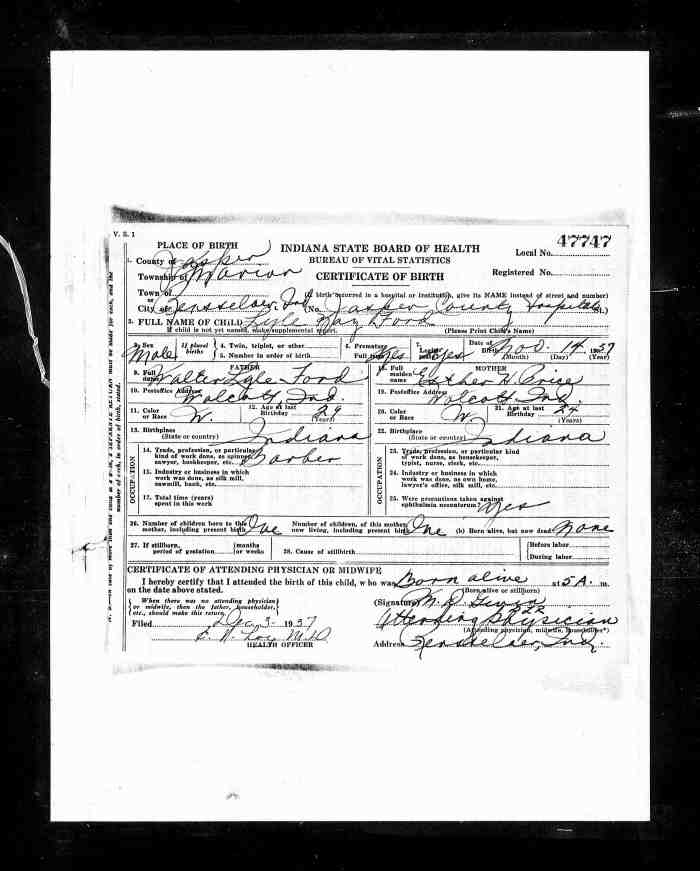 V. S. 1
PLACE OF BIRTH
INDIANA STATE BOARD OF HEALTH
47747
1. County of Jasper
BUREAU OF VITAL STATISTICS
Local No.
Township of Marion
CERTIFICATE OF BIRTH
Registered No.
Town of
or
(If birth occurred in a hospital or institution, give its NAME instead of street and number)
City of Rensselaer, Ind (No. Jasper County Hospital St.)
2. FULL NAME OF CHILD Lyle Ray Ford
If child is not yet named, make supplemental report. (Please Print Child's Name)
3. Sex Male
If plural births
4. Twin, triplet, or other
5. Number in order of birth
6. Premature
Full term Yes
7. Legitimate? Yes
Date of Birth Nov. 14, 1937
(Month) (Day) (Year)
FATHER
9. Full name Walter Lyle Ford
10. Postoffice Address Wolcott, Ind.
11. Color or Race W.
12. Age at last Birthday 29
(Years)
13. Birthplace Indiana
(State or country)
OCCUPATION
14. Trade, profession, or particular
kind of work done, as spinner,
sawyer, bookkeeper, etc. Barber
15. Industry or business in which
work was done, as silk mill,
sawmill, bank, etc.
17. Total time (years)
spent in this work
MOTHER
18. Full maiden name Esther H. Price
19. Postoffice Address Wolcott, Ind.
20. Color or Race W.
21. Age at last Birthday 24
(Years)
22. Birthplace Indiana
(State or country)
OCCUPATION
23. Trade, profession, or particular kind
of work done, as housekeeper,
typist, nurse, clerk, etc.
24. Industry or business in which
work was done, as own home,
lawyer's office, silk mill, etc.
25. Were precautions taken against
ophthalmia neonatorum? Yes
26. Number of children born to this
mother, including present birth One
Number of children, of this mother,
now living, including present birth One
(b) Born alive, but now dead None
27. If stillborn,
period of gestation
{months
or weeks
28. Cause of stillbirth
{Before labor
{During labor
CERTIFICATE OF ATTENDING PHYSICIAN OR MIDWIFE
I hereby certify that I attended the birth of this child, who was Born alive at 5 A. m.
on the date above stated.
(Born alive or stillborn)
When there was no attending physician
or midwife, then the father, householder,
etc., should make this return.
(Signature) M. D.
Attending Physician
(Attending physician, midwife, householder*)
Filed 3- 1937
M.D.
HEALTH OFFICER
Address Rensselaer, Ind
number of each, in order of birth, stated.